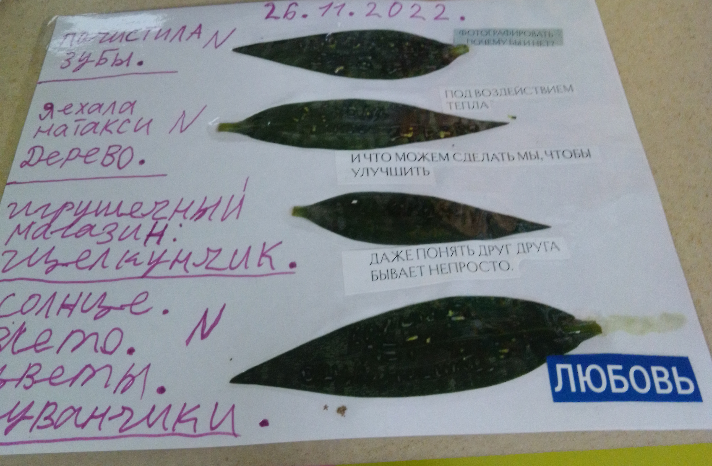 26.11.2022.
ПОЧИСТИЛА N
ЗУБЫ.
ФОТОГРАФИРОВАТЬ
ПОЧЕМУ БЫ И НЕТ?
ЯЕХАЛА
НАТАКСИ N
ДЕРЕВО.
ПОД ВОЗДЕЙСТВИЕМ
ТЕПЛА
И ЧТО МОЖЕМ СДЕЛАТЬ МЫ, ЧТОБЫ
УЛУЧШИТЬ
ИГРУШЕЧНЫЙ
МАГАЗИН:
ЩЕЛКУНЧИК.
ДАЖЕ ПОНЯТЬ ДРУГ ДРУГА
БЫВАЕТ НЕПРОСТО.
СОЛНЦЕ.
ЛЕТО. N
ЦВЕТЫ.
УВАНЧИКИ.
ЛЮБОВЬ